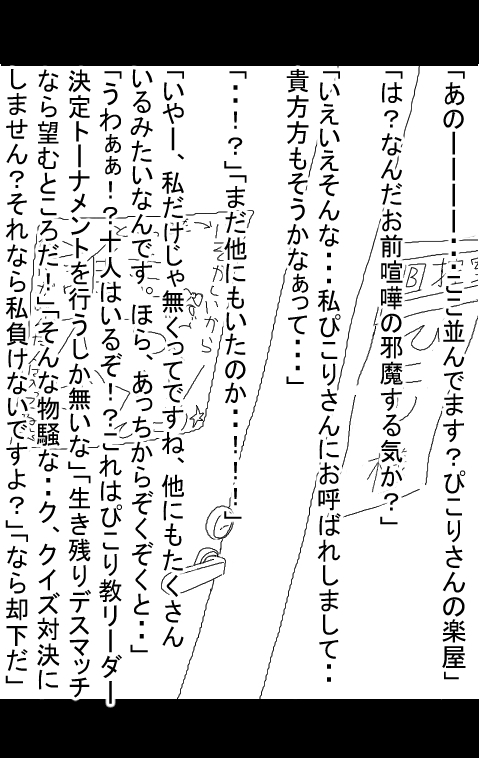 「あのーーーー・・ここ並んでます？ぴこりさんの楽屋」
「は？なんだお前喧嘩の邪魔する気か？」
「いえいえそんな・・・私ぴこりさんにお呼ばれしまして・・
貴方方もそうかなぁって・・・」
「・・！？」「まだ他にもいたのか・・！！！」
「いやー、私だけじゃ無くってですね、他にもたくさん
いるみたいなんです。ほら、あっちからぞくぞくと・・」
「うわぁぁ！？十人はいるぞ！？これはぴこり教リーダー
決定トーナメントを行うしか無いな」「生き残りデスマッチ
なら望むところだ！」「そんな物騒な・・ク、クイズ対決に
しません？それなら私負けないですよ？」「なら却下だ」